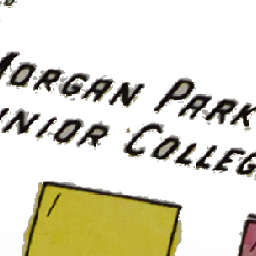 MORGAN PARK
JUNIOR COLLEGE